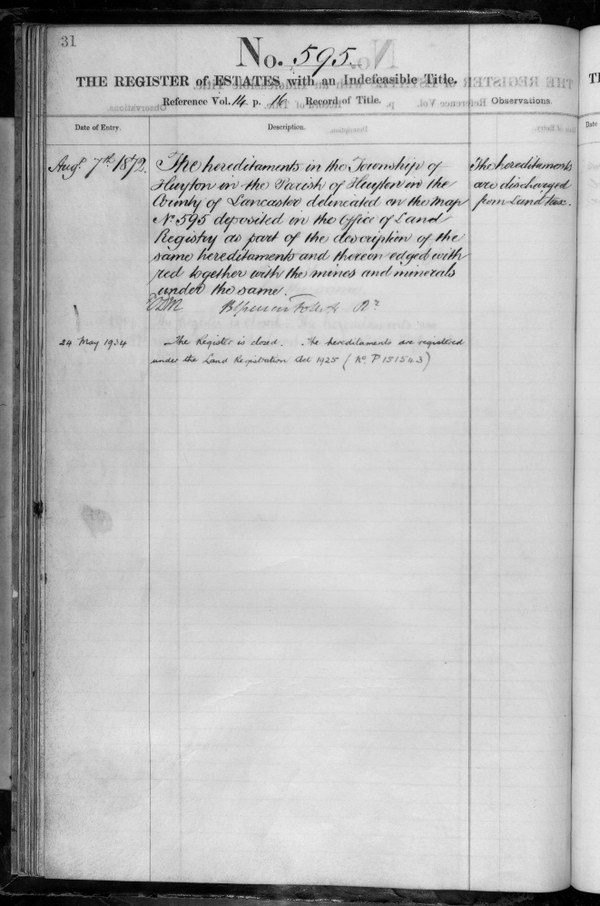 31
No. 595.
THE REGISTER of ESTATES with an Indefeasible Title.
Reference Vol. 14 p. 16 Record of Title. Observations.
Date of Entry. Description.
Augt. 7th. 1872. The hereditaments in the Township of
Huyton in the Parish of Huyton in the
County of Lancaster delineated on the Map
No. 595 deposited in the Office of Land
Registry as part of the description of the
same hereditaments and thereon edged with
red together with the mines and minerals
under the same.
The hereditaments
are discharged
from Land tax.
24 May 1934 The Register is closed. The hereditaments are registered
under the Land Registration Act 1925 (No. P 151543)